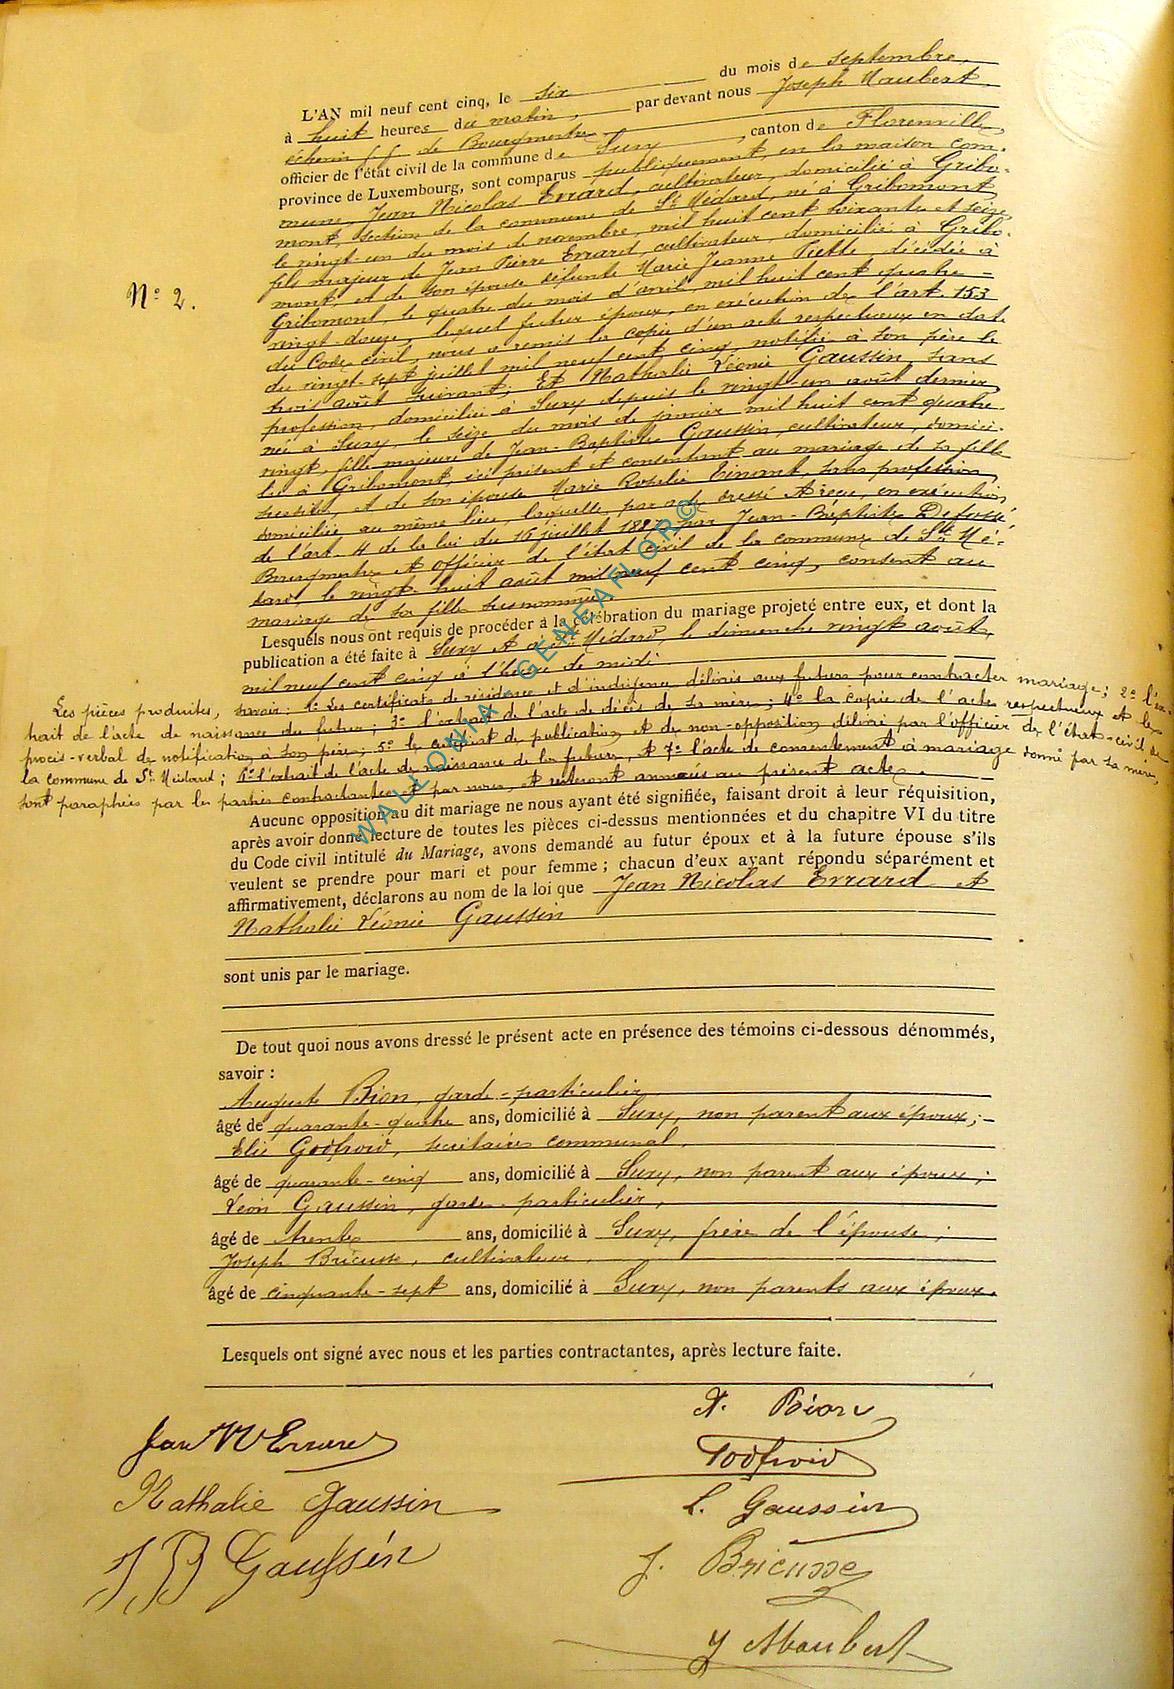 L'AN mil neuf cent cinq, le six du mois de septembre,
à huit heures du matin, par devant nous Joseph Maubert,
échevin f.f. de Bourgmestre
officier de l'état civil de la commune de Suxy, canton de Florenville,
province de Luxembourg, sont comparus publiquement, en la maison com-
mune, Jean Nicolas Errard, cultivateur, domicilié à Gribo-
mont, section de la commune de St Médard, né à Gribomont
le vingt-un du mois de novembre, mil huit cent soixante et seize,
fils majeur de Jean Pierre Errard, cultivateur, domicilié à Gribo-
mont, et de son épouse défunte Marie Jeanne Piette, décédée à
Gribomont, le quatre du mois d'avril, mil huit cent quatre-
vingt-douze, lequel futur époux, en exécution de l'art. 153
du Code civil, nous a remis la copie d'un acte respectueux en date
du vingt-sept juillet mil neuf cent cinq, notifié à son père le
trois août suivant; Et Nathalie Léonie Gaussin, sans
profession, domiciliée à Suxy depuis le vingt-un août dernier,
née à Suxy, le seize du mois de janvier mil huit cent quatre-
vingt, fille majeure de Jean-Baptiste Gaussin, cultivateur, domici-
lié à Gribomont, ici présent et consentant au mariage de sa fille
prédite, et de son épouse Marie Rosalie sans profession,
domiciliée au même lieu, laquelle, par acte dressé et reçu, en exécution
de l'art. 4 de la loi du 16 juillet 1887 par Jean-Baptiste Defossé,
Bourgmestre et officier de l'état civil de la commune de St Mé-
dard, le vingt-huit août mil neuf cent cinq, consent au
mariage de sa fille susnommée.
Lesquels nous ont requis de procéder à la célébration du mariage projeté entre eux, et dont la
publication a été faite à Suxy et à St Médard, le dimanche vingt août,
mil neuf cent cinq à l'heure de midi
N° 2.
Les pièces produites, savoir: 1° Les certificats de résidence et d'indigence délivrés aux futurs pour contracter mariage; 2° l'ex-
trait de l'acte de naissance du futur; 3° l'extrait de l'acte de décès de sa mère; 4° la copie de l'acte respectueux et le
procès-verbal de notification à son père; 5° le certificat de publication et de non-opposition délivré par l'officier de l'état-civil de
la commune de St Médard; 6° l'extrait de l'acte de naissance de la future, et 7° l'acte de consentement à mariage donné par sa mère,
sont paraphées par les parties contractantes et par nous, et resteront annexés au présent acte.
Aucune opposition au dit mariage ne nous ayant été signifiée, faisant droit à leur réquisition,
après avoir donné lecture de toutes les pièces ci-dessus mentionnées et du chapitre VI du titre
du Code civil intitulé du Mariage, avons demandé au futur époux et à la future épouse s'ils
veulent se prendre pour mari et pour femme; chacun d'eux ayant répondu séparément et
affirmativement, déclarons au nom de la loi que Jean Nicolas Errard et
Nathalie Léonie Gaussin
sont unis par le mariage.
De tout quoi nous avons dressé le présent acte en présence des témoins ci-dessous dénommés,
savoir :
Auguste Bion, garde-particulier
âgé de quarante-quatre ans, domicilié à Suxy, non parent aux époux;
Elie Godfroid, secrétaire communal,
âgé de quarante-cinq ans, domicilié à Suxy, non parent aux époux;
Léon Gaussin, garde-particulier,
âgé de trente ans, domicilié à Suxy, frère de l'épouse;
Joseph Bricusse, cultivateur,
âgé de cinquante-sept ans, domicilié à Suxy, non parents aux époux.
Lesquels ont signé avec nous et les parties contractantes, après lecture faite.
A. Bion
Jean N Errard
Godfroid
Nathalie Gaussin
L. Gaussin
J B Gaussin
J. Bricusse
J Maubert
WALLONIA GENEAFLOR©